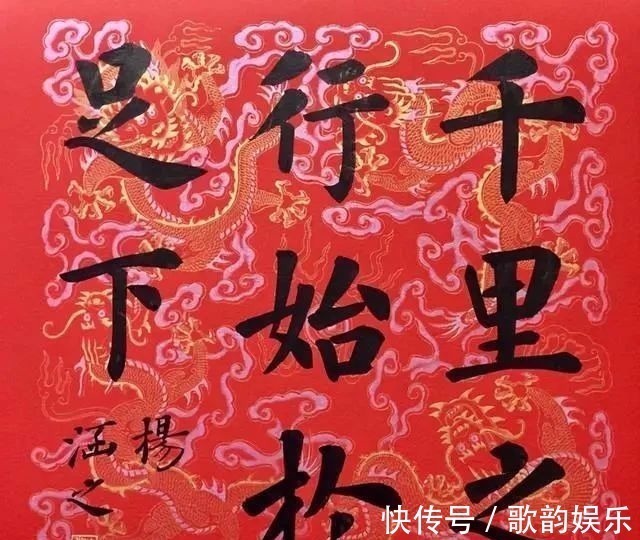 千里之
行始扵
足下
楊
涵之
快传号/歌韵娱乐